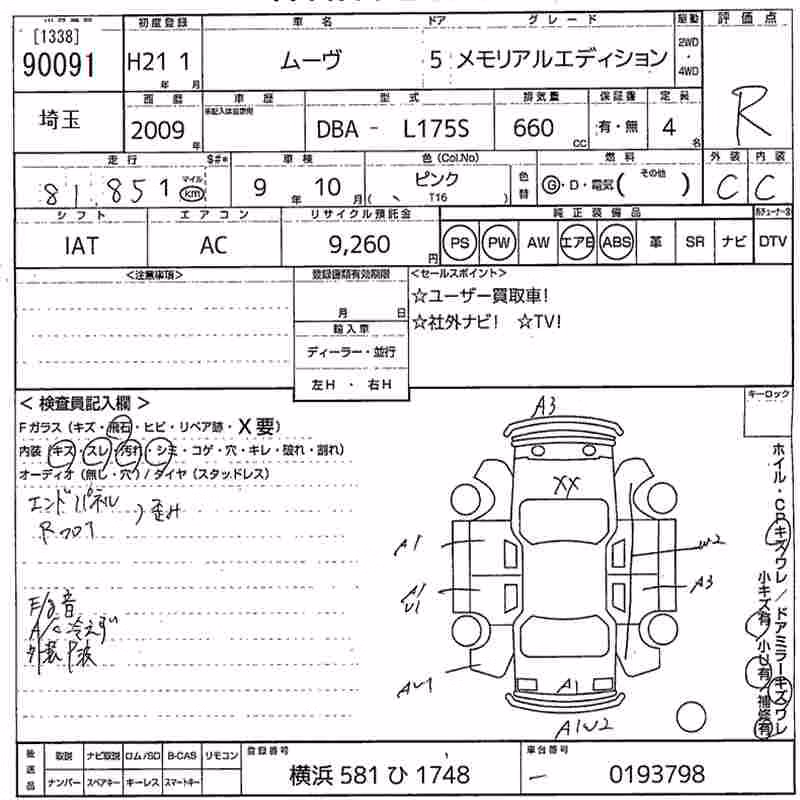 [1338]
90091
初度登録
H21 1
年 月
車名
ムーヴ
ドア
5
グレード
メモリアルエディション
駆動
2WD
・
4WD
評価点
R
埼玉
西暦
2009
年
車歴
型式
DBA - L175S
排気量
660
CC
保証書
有・無
定員
4
名
走行
81,851
マイル
km
$#*
車検
9 年 10 月
色(Col.No)
ピンク
( 、 T16 )
色替
燃料
G・D・電気( その他 )
外装
C
内装
C
シフト
IAT
エアコン
AC
リサイクル預託金
9,260
円
純正装備品
PS
PW
AW
エアB
ABS
革
SR
ナビ
DTV
<注意事項>
登録書類有効期限
月 日
輸入車
ディーラー・並行
左H ・ 右H
<セールスポイント>
☆ユーザー買取車!
☆社外ナビ! ☆TV!
< 検査員記入欄 >
Fガラス (キズ・飛石・ヒビ・リペア跡・X要)
内装 (キズ・スレ・汚れ・シミ・コゲ・穴・キレ・破れ・割れ)
オーディオ (無し・穴) / タイヤ (スタッドレス)
エンドパネル
Rフロア
歪み
E/g音
A/C冷えず
外装P波
A3
XX
A1
W2
A1
U1
A3
AU1
A1
A1W2
キーロック
ホイル・CPキズワレ/ドアミラーキズワレ
小キズ有 小U有 補修有
後送品
取説
ナビ取説
ロム/SD
B-CAS
リモコン
ナンバー
スペアキー
キーレス
スマートキー
登録番号
横浜 581 ひ 1748
車台番号
- 0193798